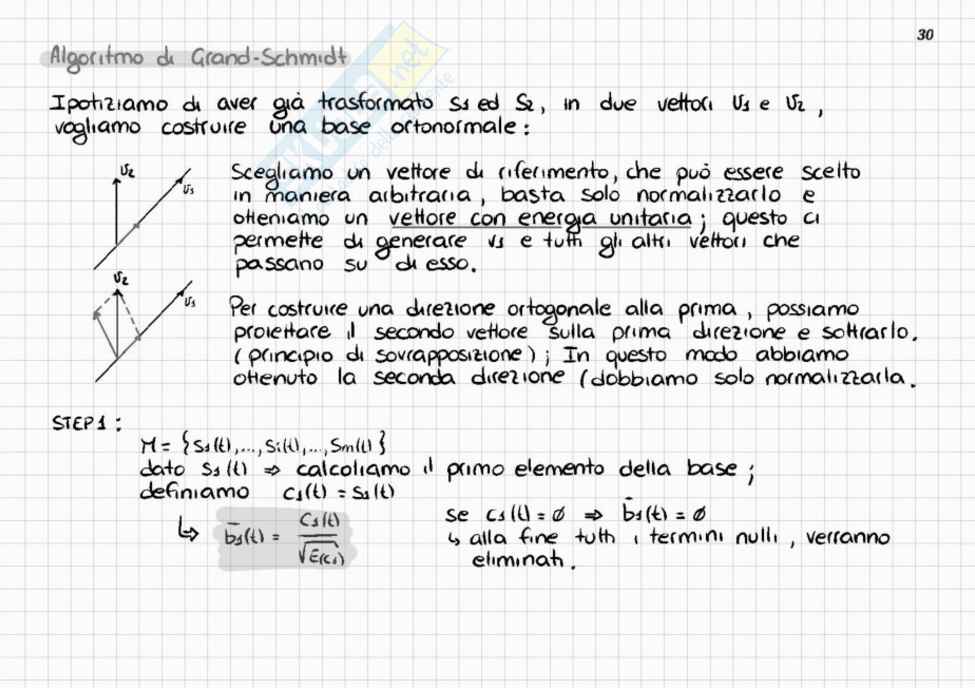 30
Algoritmo di Grand-Schmidt
Ipotiziamo di aver già trasformato S1 ed S2, in due vettori v1 e v2,
vogliamo costruire una base ortonormale:
v2
v1
Scegliamo un vettore di riferimento, che può essere scelto
in maniera arbitraria, basta solo normalizzarlo e
otteniamo un vettore con energia unitaria; questo ci
permette di generare v1 e tutti gli altri vettori che
passano su di esso.
v2
v1
Per costruire una direzione ortogonale alla prima, possiamo
proiettare il secondo vettore sulla prima direzione e sottrarlo.
(principio di sovrapposizione); In questo modo abbiamo
ottenuto la seconda direzione (dobbiamo solo normalizzarla.
STEP 1:
M = {S1(t),...,Si(t),...,Sm(t)}
dato S1(t) ⇒ calcoliamo il primo elemento della base;
definiamo C1(t) = S1(t)
↳ b̄1(t) = C1(t) / √E(C1)
se C1(t) = ∅ ⇒ b̄1(t) = ∅
↳ alla fine tutti i termini nulli, verranno
eliminati.